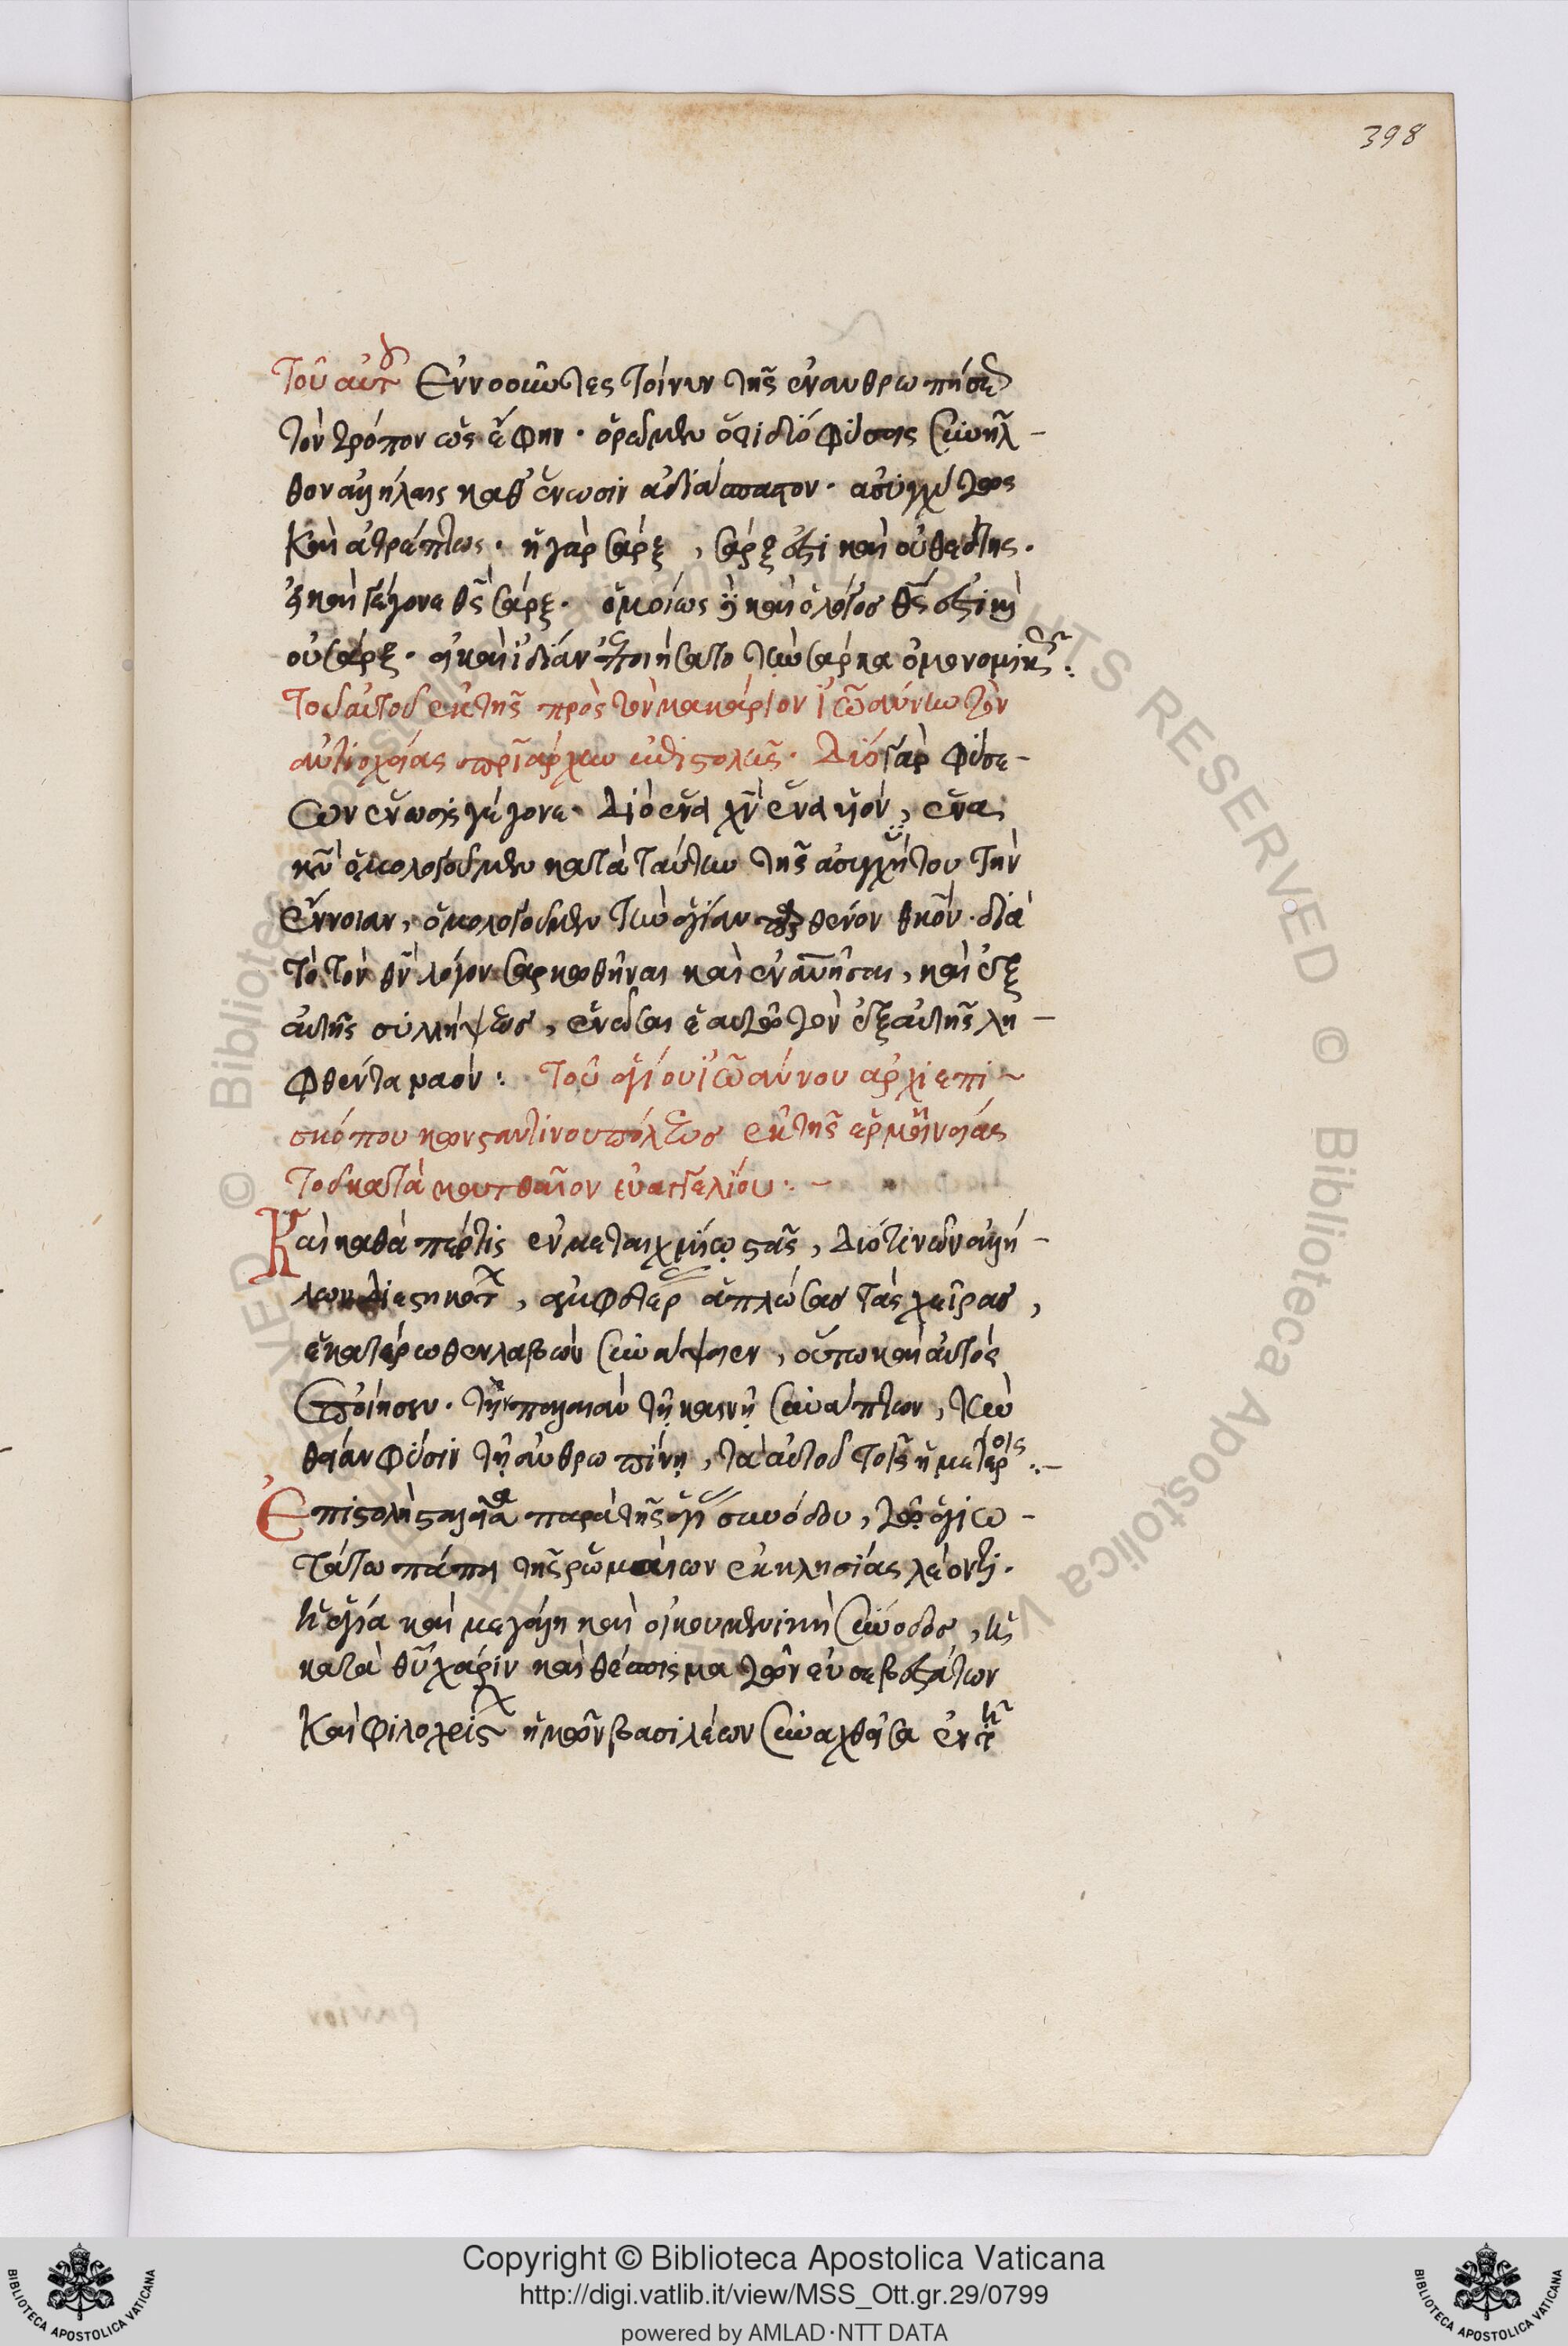 398
Τοῦ αὐτοῦ Ἐννοοῦντες τοίνυν τῆς ἐνανθρωπήσεως
τὸν τρόπον ὡς ἔφην· ὁρῶμεν ὅτι δύο φύσεις συνῆλ-
θον ἀλλήλαις καθ' ἕνωσιν ἀδιάσπαστον· ἀσυγχύτως
καὶ ἀτρέπτως· ἡ γὰρ σάρξ, σάρξ ἐστι καὶ οὐ θεότης·
εἰ καὶ γέγονε θῦ σάρξ· ὁμοίως δὲ καὶ ὁ λόγος θς ἐστι καὶ
οὐ σάρξ· εἰ καὶ ἰδίαν ἐποιήσατο τὴν σάρκα οἰκονομικῶς:
Τοῦ αὐτοῦ ἐκ τῆς πρὸς τὸν μακάριον ἰωάννην τὸν
ἀντιοχείας πριάρχην ἐπιστολῆς· Δύο γὰρ φύσε-
ων ἕνωσις γέγονε· διὸ ἕνα χν ἕνα υἱόν, ἕνα
κν ὁμολογοῦμεν κατὰ ταύτην τῆς ἀσυγχύτου τὴν
ἔννοιαν, ὁμολογοῦμεν τὴν ἁγίαν παρθένον θκον· διὰ
τὸ τὸν θν λόγον σαρκωθῆναι καὶ ἐναννῆσαι, καὶ ἐξ
αὐτῆς συλλήψεως, ἑνῶσαι ἑαυτῶ τὸν ἐξ αὐτῆς λη-
φθέντα ναόν: Τοῦ ἁγίου ἰωάννου ἀρχιεπι-
σκόπου κωνσταντινουπόλεως ἐκ τῆς ἑρμηνείας
τοῦ κατὰ ματθαῖον εὐαγγελίου:-
Καὶ καθάπερ τις ἐν μεταιχμίῳ στὰς, δύο τινῶν ἀλλή-
λων διεστηκότων, ἀμφοτέρας ἁπλώσας τὰς χεῖρας,
ἑκατέρωθεν λαβὼν συνάψειεν, οὕτω καὶ αὐτὸς
ἐποίησεν· τὴν παλαιὰν τῇ καινῇ συνάπτων, τὴν
θείαν φύσιν τῇ ἀνθρωπίνῃ, τὰ αὐτοῦ τοῖς ἡμετέροις:-
Ἐπιστολὴ σταλεῖσα παρὰ τῆς ἁγίας συνόδου, τῶ ἁγιω-
τάτω πάπα τῆς ῥωμαίων ἐκκλησίας λέοντι·
Ἡ ἁγία καὶ μεγάλη καὶ οἰκουμενικὴ σύνοδος, ἡ
κατὰ θυ χάριν καὶ θέσπισμα τῶν εὐσεβεστάτων
καὶ φιλοχρίστων ἡμῶν βασιλέων συναχθεῖσα ἐν τῇ
Copyright © Biblioteca Apostolica Vaticana
http://digi.vatlib.it/view/MSS_Ott.gr.29/0799
powered by AMLAD·NTT DATA